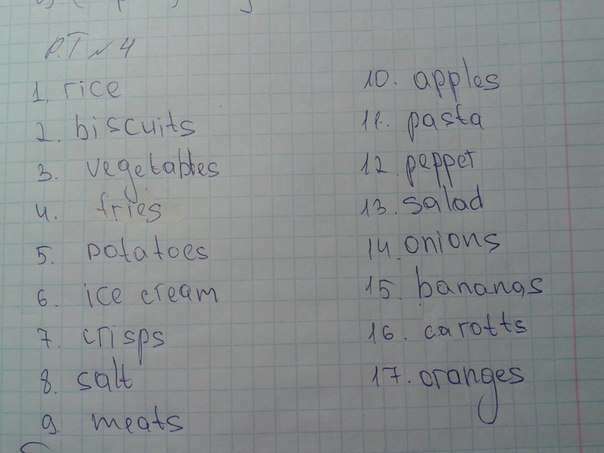 P.T № 4
1. rice
2. biscuits
3. vegetables
4. fries
5. potatoes
6. ice cream
7. crisps
8. salt
9 meats
10. apples
11. pasta
12. pepper
13. salad
14. onions
15. bananas
16. carotts
17. oranges